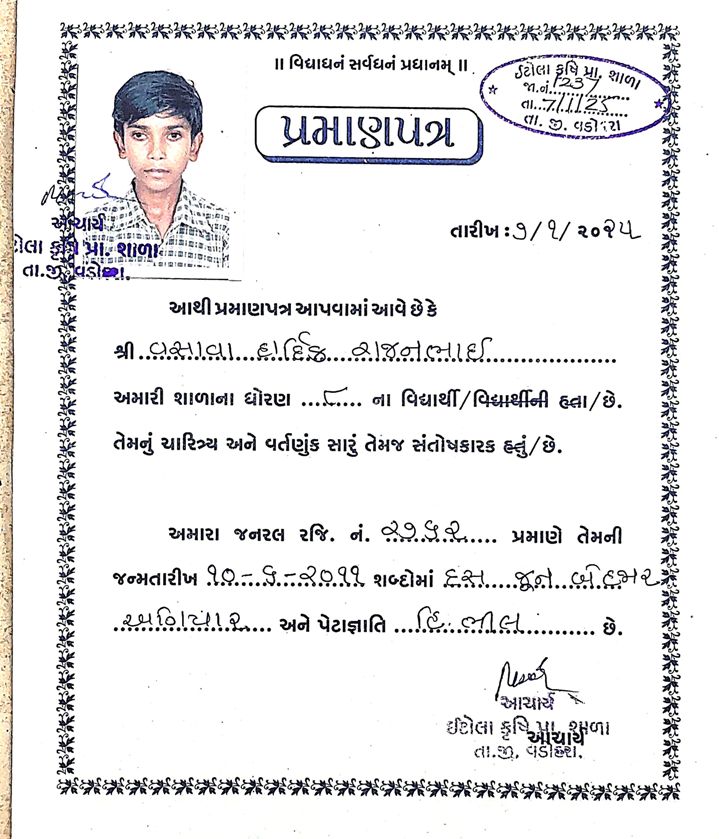 ॥ વિદ્યાધનં સર્વધનં પ્રધાનમ્ ॥
ઈટોલા કૃષિ પ્રા. શાળા
જા.નં. 237
તા. 7/1/25
તા. જી. વડોદરા
પ્રમાણપત્ર
આચાર્ય
ટોલા કૃષિ પ્રા. શાળા
તા.જી. વડોદરા.
તારીખ : ૭/૧/૨૦૨૫
આથી પ્રમાણપત્ર આપવામાં આવે છે કે
શ્રી વસાવા હાર્દિક રાજનભાઈ
અમારી શાળાના ધોરણ ૮ ના વિદ્યાર્થી/વિદ્યાર્થીની હતા/છે.
તેમનું ચારિત્ર્ય અને વર્તણુંક સારું તેમજ સંતોષકારક હતું/છે.
અમારા જનરલ રજિ. નં. ૨૭૬૨ પ્રમાણે તેમની
જન્મતારીખ ૧૦-૬-૨૦૧૧ શબ્દોમાં દસ જૂન બેહજાર
અગિયાર અને પેટાજ્ઞાતિ હિ. ભીલ છે.
આચાર્ય
ઈટોલા કૃષિ પ્રા. શાળા
આચાર્ય
તા.જી. વડોદરા.